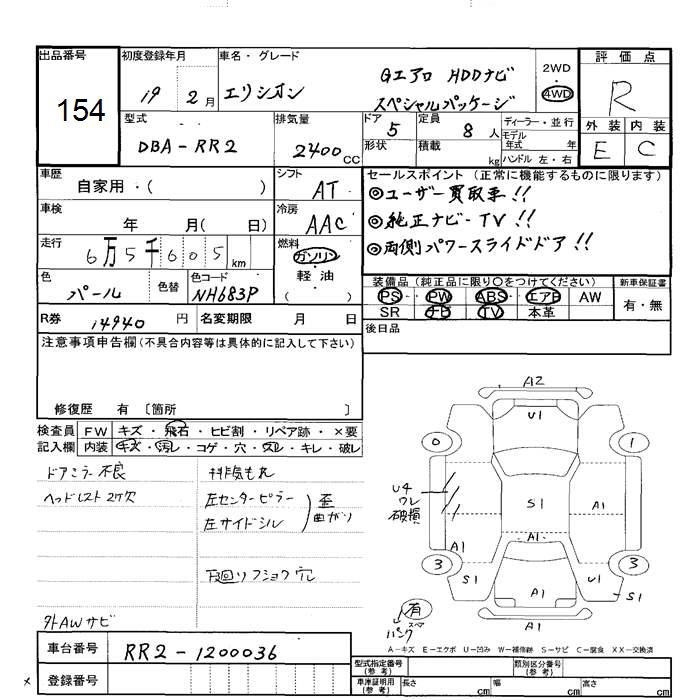 出品番号
154
初度登録年月
19 2 月
車名・グレード
エリシオン
Gエアロ HDDナビ
スペシャルパッケージ
2WD
4WD
評価点
R
外装 内装
E C
型式
DBA-RR2
排気量
2400 CC
ドア 5
形状
定員 8 人
積載 kg
ディーラー・並行
モデル年式 年
ハンドル 左・右
車歴
自家用・( )
シフト
AT
セールスポイント (正常に機能するものに限ります)
◎ユーザー買取車!!
◎純正ナビ-TV!!
◎両側パワースライドドア!!
車検
年 月( 日)
冷房
AAC
走行
6万5千605 km
燃料
ガソリン・
軽・油
色
パール
色替
色コード
NH683P
装備品 (純正品に限り○をつけてください)
PS PW ABS エアB AW
SR ナビ TV 本革
新車保証書
有・無
R券 14940 円
名変期限 月 日
後日品
注意事項申告欄(不具合内容等は具体的に記入して下さい)
修復歴 有 〔箇所 〕
検査員記入欄
FW キズ・飛石・ヒビ割・リペア跡・×要
内装 キズ・汚レ・コゲ・穴・スレ・キレ・破レ
ドアミラー不良
ヘッドレスト2ケ欠
排気もれ
左センターピラー
左サイドシル
歪
曲がり
下回リフショク穴
外AWサビ
A2
U1
0
1
U4
ワレ
破損
S1
A1
A1
A1
3
3
S1
A1
U1
S1
A1
有
スペア
パンク
A-キズ E-エクボ U-凹み W-補修跡 S-サビ C-腐食 XX-交換済
車台番号
RR2-1200036
登録番号
×
型式指定番号
(参考)
類別区分番号
(参考)
車庫証明用
(参考)
長さ cm
幅 cm
高さ cm